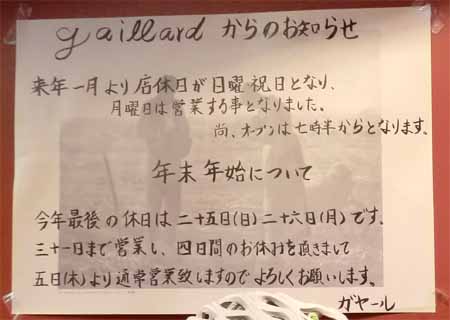 gaillard からのお知らせ
来年一月より店休日が日曜・祝日となり、
月曜日は営業する事となりました。
尚、オープンは七時半からとなります。
年末年始について
今年最後の休日は二十五日(日)二十六日(月)です。
三十一日まで営業し、四日間のお休みを頂きまして
五日(木)より通常営業致しますのでよろしくお願いします。
ガヤール